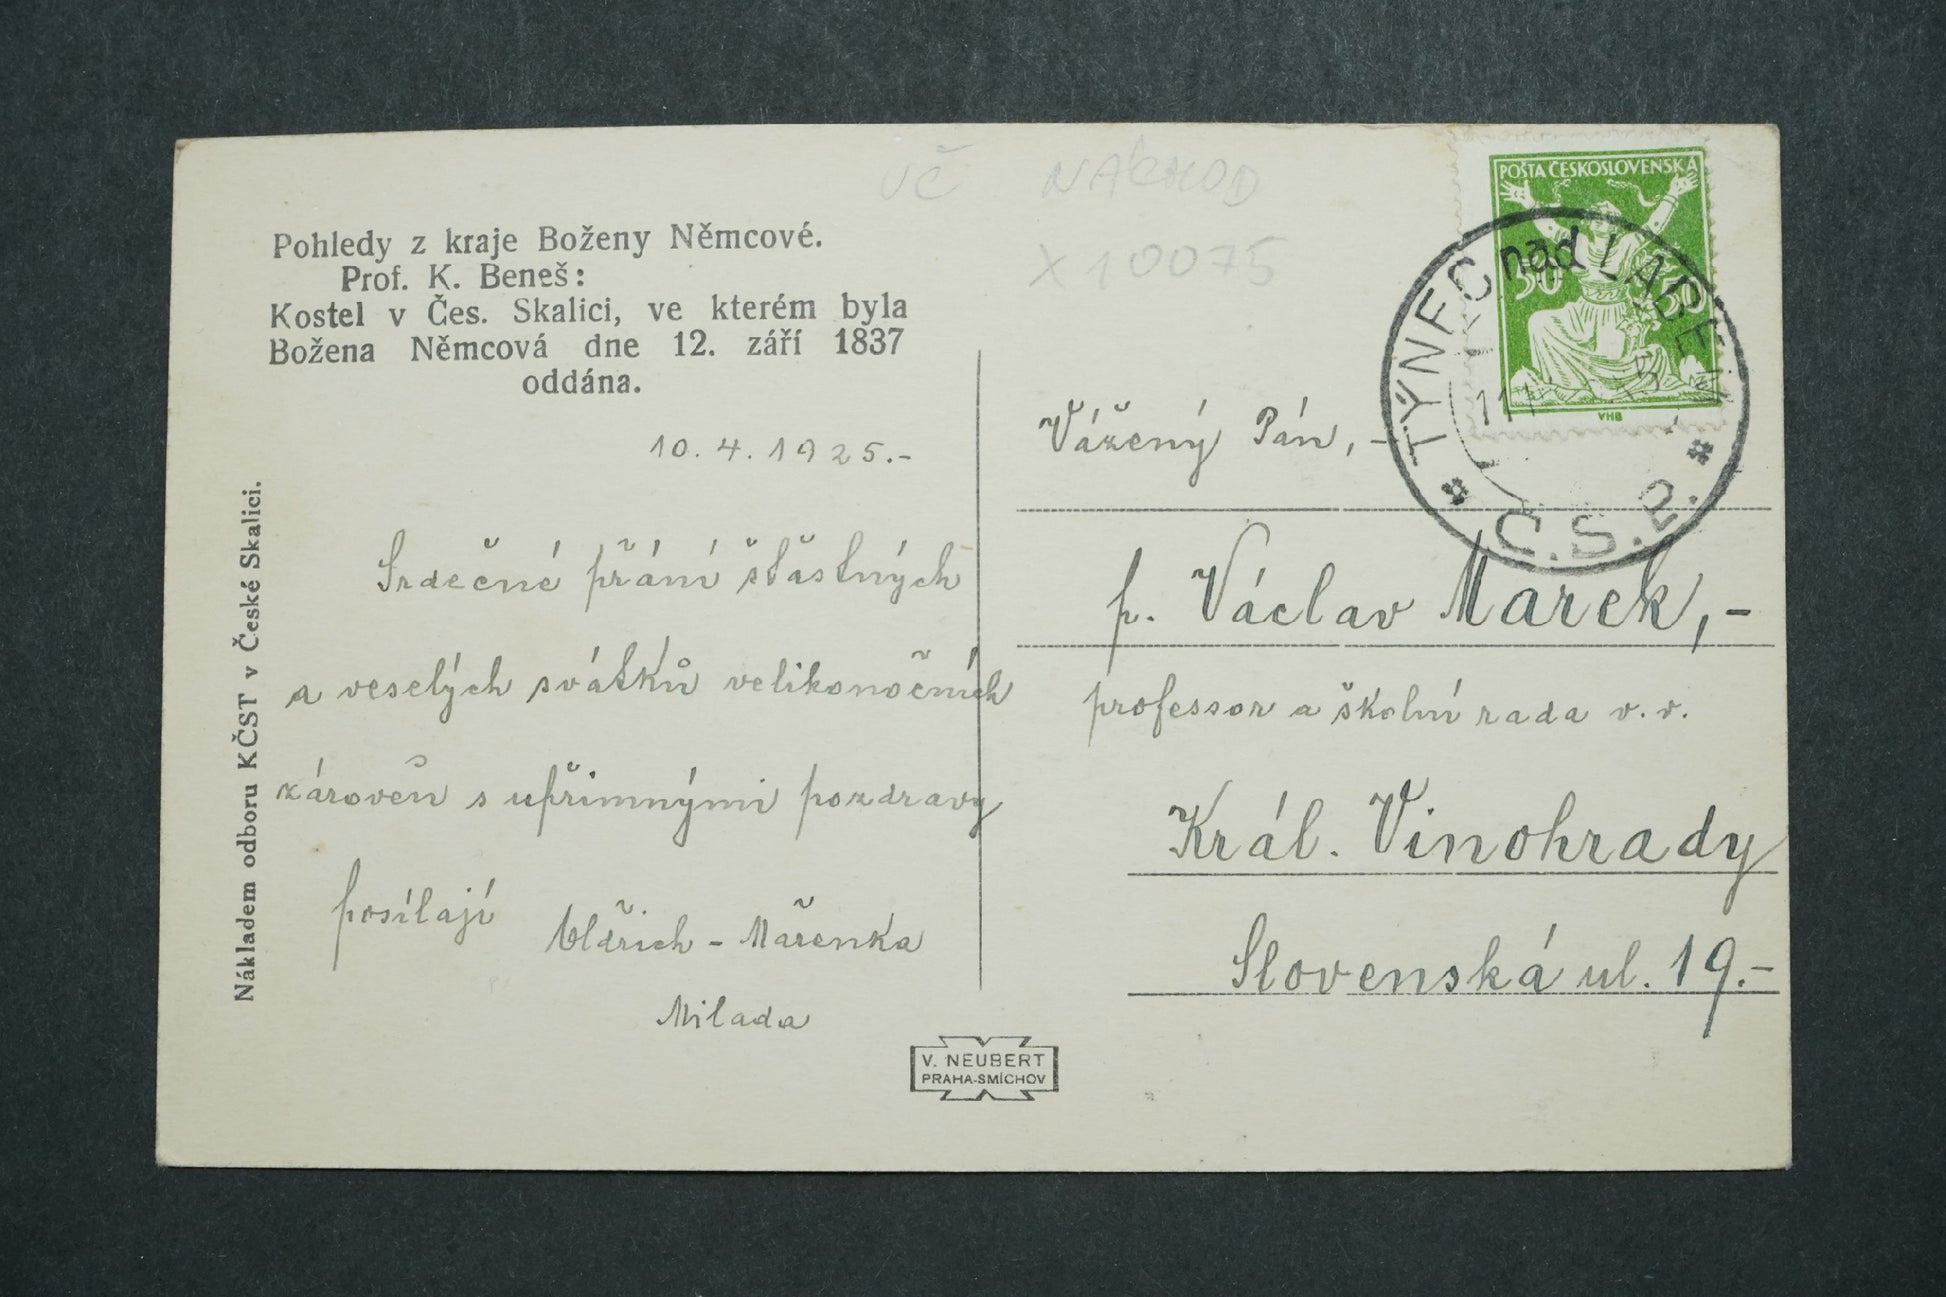 VČ NÁCHOD
X10075
Pohledy z kraje Boženy Němcové.
Prof. K. Beneš:
Kostel v Čes. Skalici, ve kterém byla
Božena Němcová dne 12. září 1837
oddána.
10. 4. 1925.-
Srdečné přání šťastných
a veselých svátků velikonočních
zároveň s upřímnými pozdravy
posílají Oldřich - Mařenka
Milada
Nákladem odboru KČST v České Skalici.
V. NEUBERT
PRAHA-SMÍCHOV
POŠTA ČESKOSLOVENSKÁ
50 50
VHB
TÝNEC nad LABEM
Č.S.P.
Vážený Pán,-
p. Václav Marek,-
professor a školní rada v. v.
Král. Vinohrady
Slovenská ul. 19.-